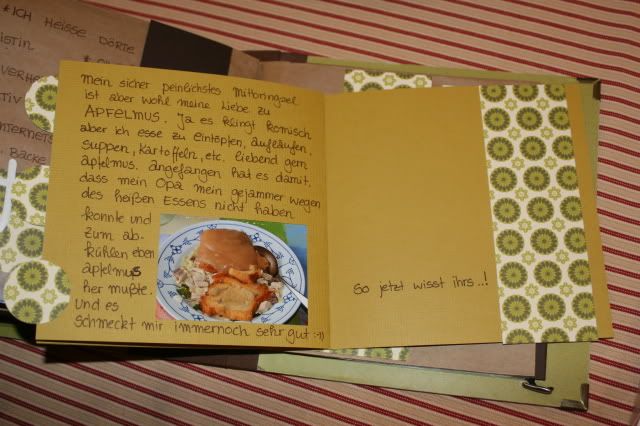 *ICH HEISSE DÖRTE
Mein sicher peinlichstes Mitbringsel
ist aber wohl meine Liebe zu
APFELMUS. Ja es klingt komisch
aber ich esse zu Eintöpfen, Aufläufen,
Suppen, Kartoffeln, etc. liebend gern
Apfelmus. Angefangen hat es damit,
dass mein Opa mein gejammer wegen
des heißen Essens nicht haben
konnte und
zum ab-
kühlen eben
Apfelmus
her mußte.
Und es
schmeckt mir immernoch sehr gut :-))
So jetzt wisst ihrs...!